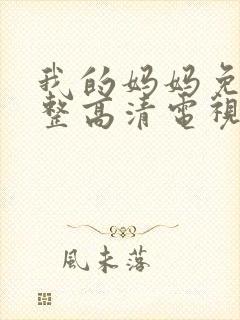 我的妈妈免
整高清電視
風未落